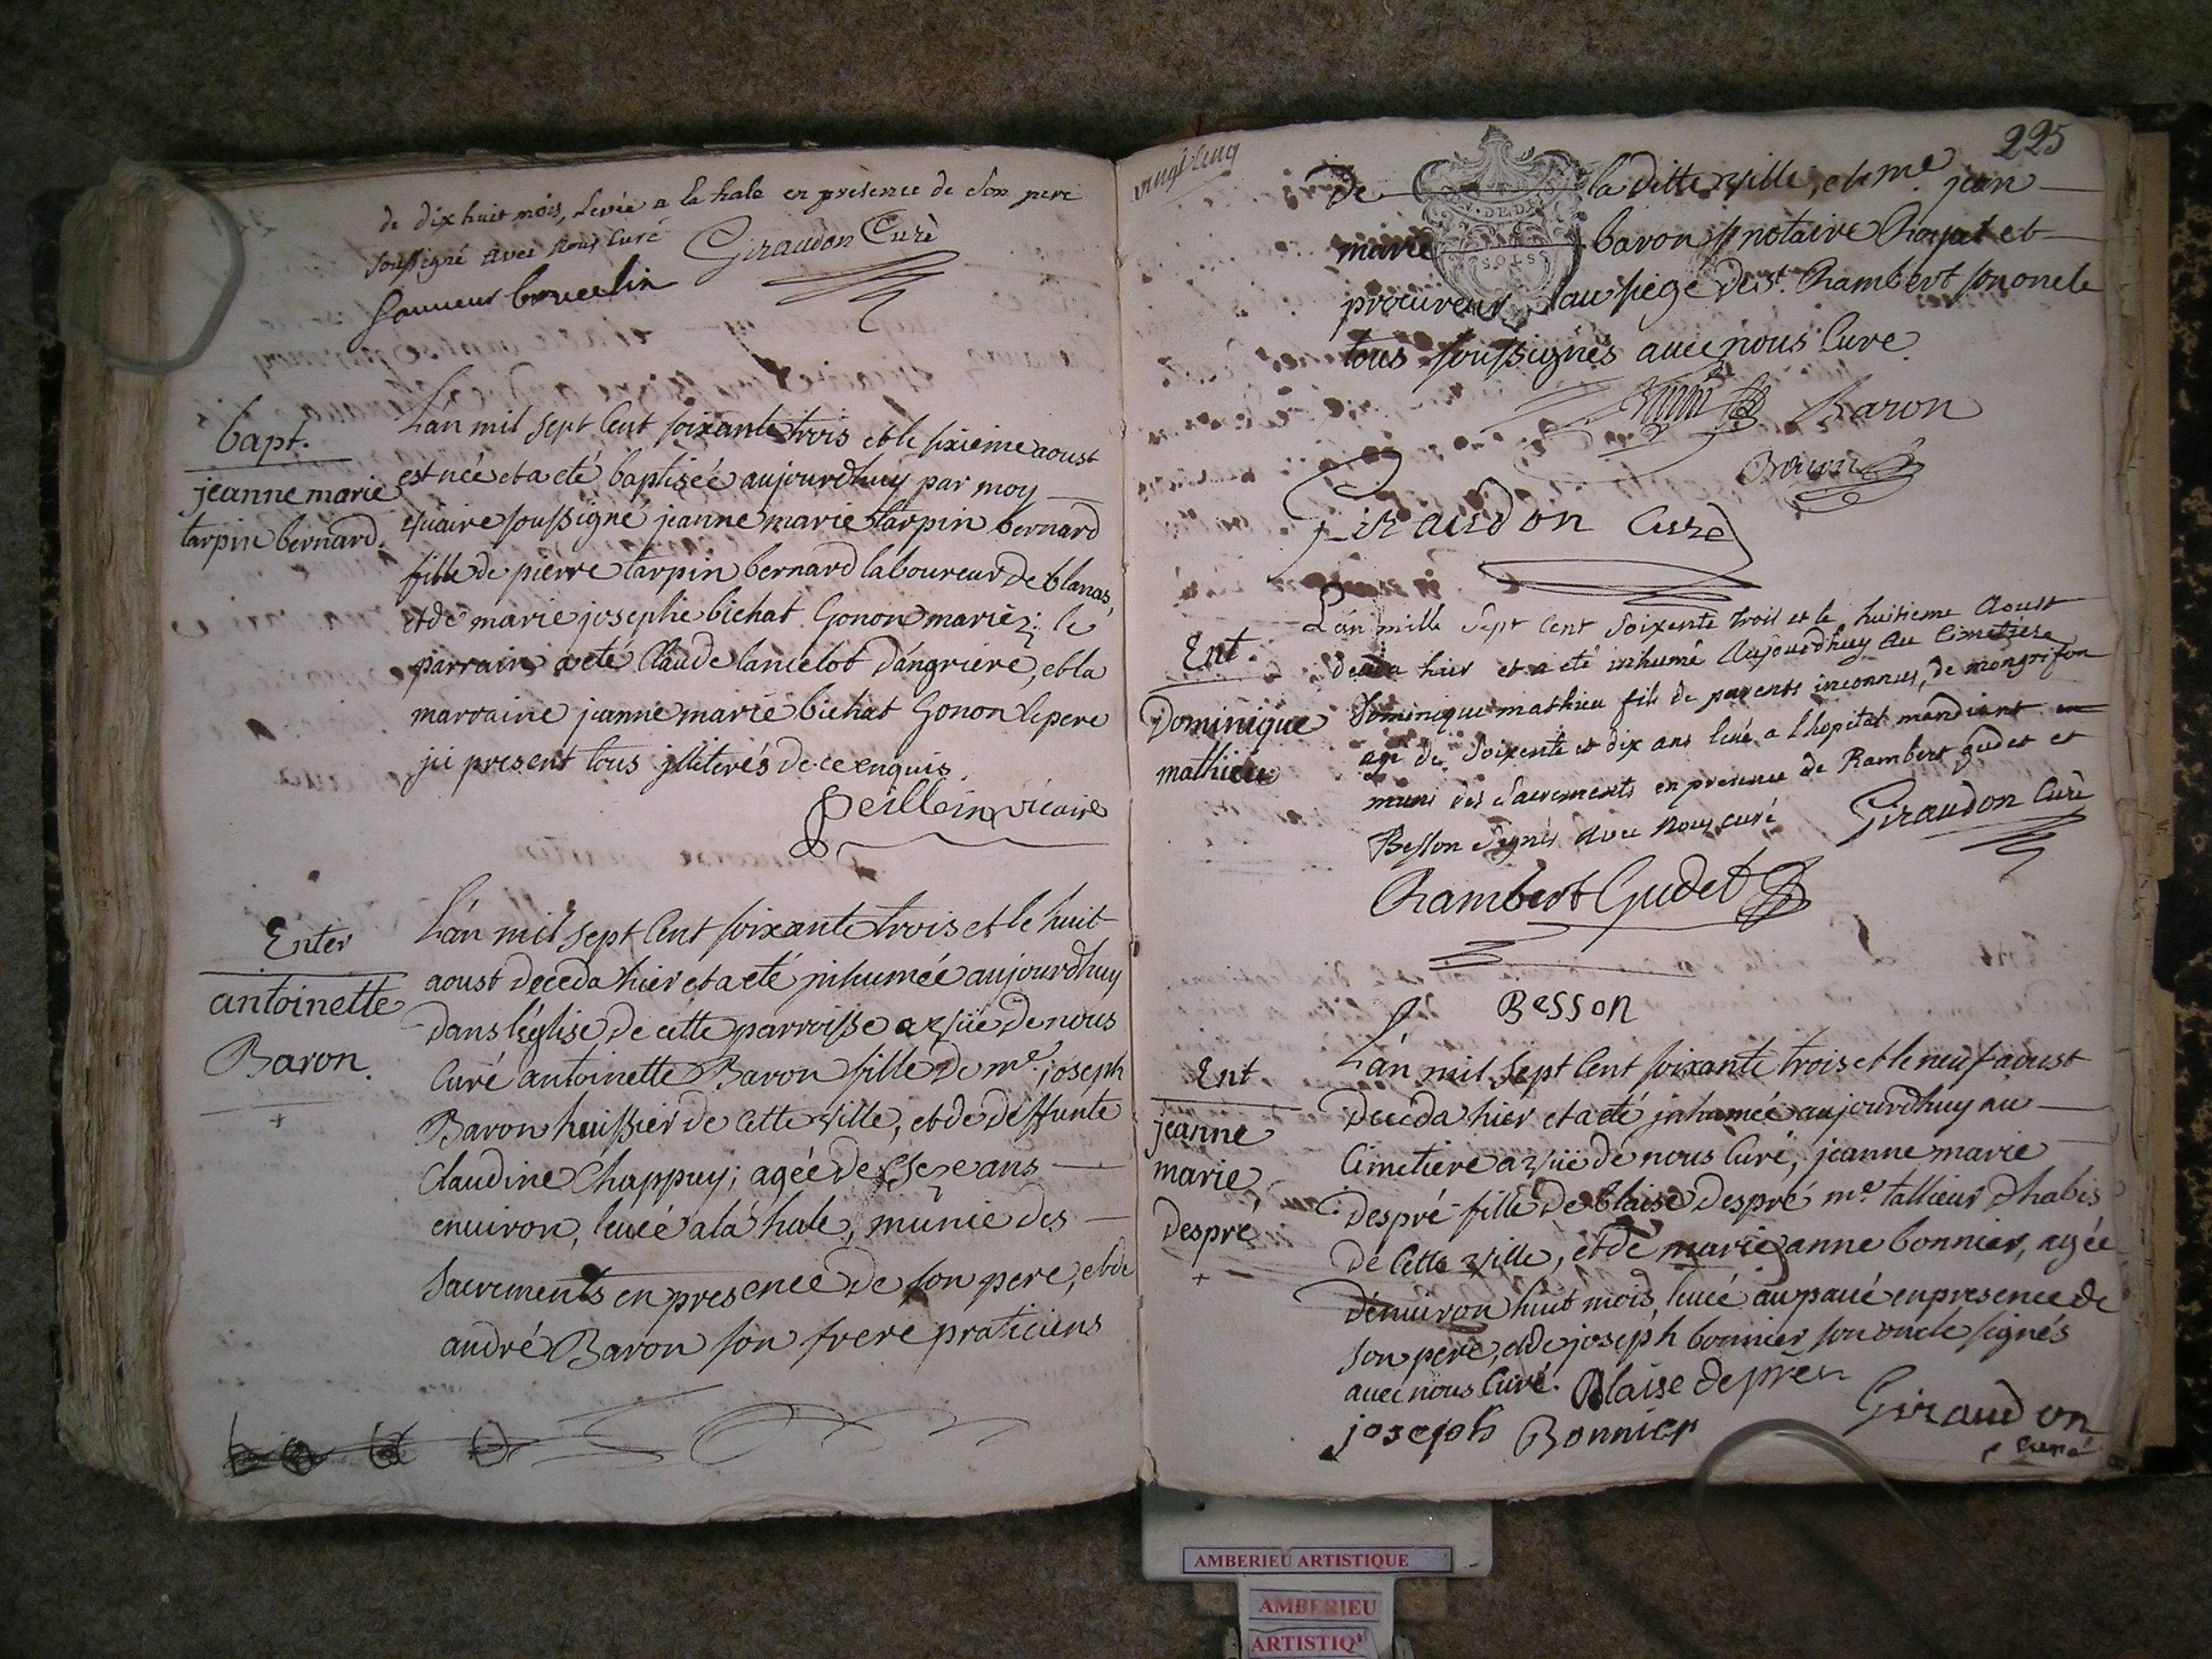 de dix huit mois, levée a la hale en presence de son pere
soussigné avec nous Curé Giraudon Curé
bapt.
jeanne marie
tarpin bernard.
L'án mil sept Cent soixante trois et le sixieme aoust
est née et a eté baptisée aujourdhuy par moy
vicaire soussigné jeanne marie tarpin bernard
fille de pierre tarpin bernard laboureur de blanas,
et de marie josephe bichat Gonon mariés; le
parrain a eté Claude lancelot d'angrieré, et la
marraine jeanne marie bichat Gonon le pere
ji present tous jlliterés de ce enquis.
peillein vicaire
Enter
antoinette
Baron.
L'án mil sept Cent soixante trois et le huit
aoust deceda hier et a eté jnhumée aujourdhuy
dans l'église de cette parroisse a vüe de nous
Curé antoinette Baron fille de me. joseph
Baron huissier de Cette ville, et de deffunte
Claudine Chappuy; agée de seze ans
enuiron, leuée a la hale, munie des
sacrements en presence de son pere, et de
andré Baron son frere praticiens
vingt cinq
225
de la ditte ville, et me. jean
marie baron notaire Royal et
procureur au siege de st. Rambert son oncle
tous soussignés auec nous Cure.
Baron
Baron
Giraudon Curé
Ent.
Dominique
mathieu
L'an mille Sept Cent Soixente trois et le huitieme Aoust
deceda hier et a eté inhumé Aujourdhuy Au Cimetiere
Dominique mathieu fils de parents inconnus, de mongrifon
agé de Soixente et dix ans levé a l'hopital mendiant
muni des Sacrements en presence de Rambert gudet et
Besson Signés Avec Nous curé Giraudon Curé
Rambert Gudet
Besson
Ent
jeanne
marie
despré
L'án mil sept Cent soixante trois et le neuf aoust
deceda hier et a eté jnhumée aujourdhuy au
Cimetiere a vüe de nous Curé, jeanne marie
despré fille de blaise despré me. tallieur dhabis
de Cette ville, et de marie anne bonnier, agée
d'énuiron huit mois, leuée au paué en presence de
son pere, et de joseph bonnier son oncle signés
auec nous Curé. Blaise deprés
joseph Bonnier Giraudon
curé
AMBERIEU ARTISTIQUE
AMBERIEU
ARTISTIQ